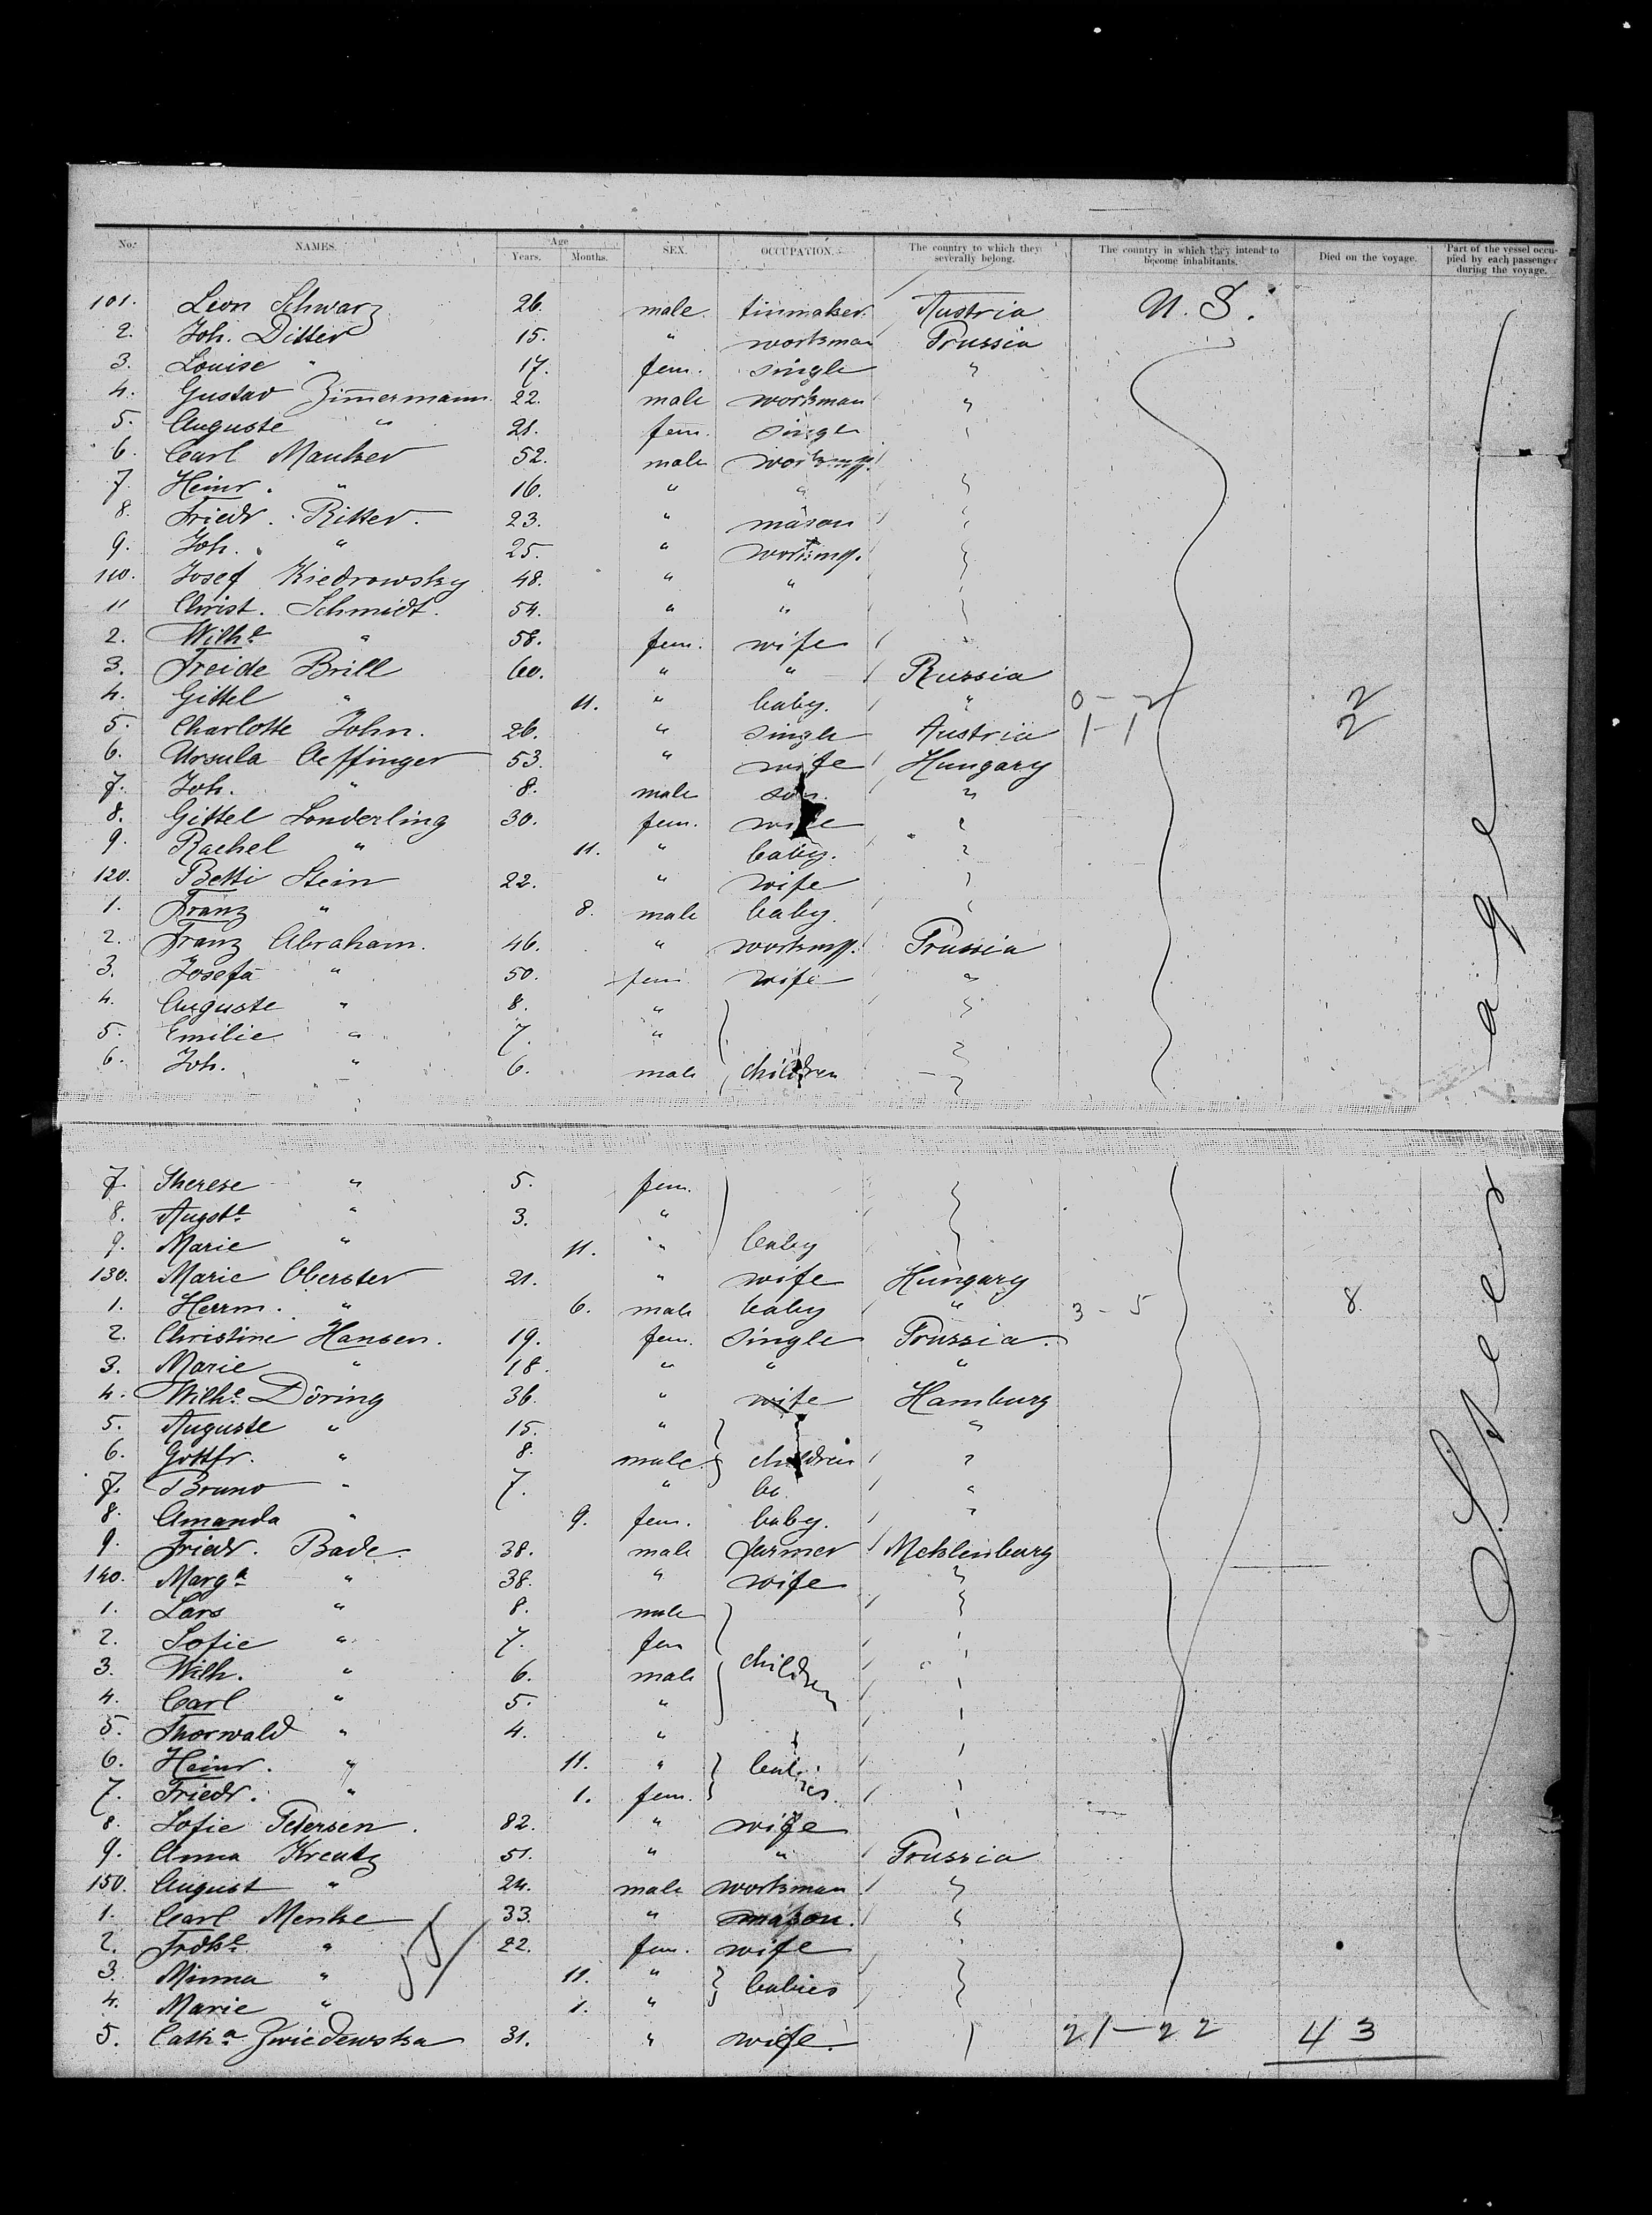 No. NAMES. Age Years. Months. SEX. OCCUPATION. The country to which they severally belong. The country in which they intend to become inhabitants. Died on the voyage. Part of the vessel occupied by each passenger during the voyage.
101. Leon Schwarz 26. male. tinmaker. Austria U. S.
2. Joh. Ditter 15. " workman Prussia
3. Louise " 17. fem. single "
4. Gustav Zimermann 22. male workman "
5. Auguste " 21. fem. single "
6. Carl Manker 52. male
7. Heinr. " 16. " "
8. Friedr. Ritter. 23. " mason "
9. Joh. " 25. "
110. Josef Kiedrowsky 48. " "
11 Christ. Schmidt. 54. " "
2. Wilhe " 58. fem. wife
3. Freide Brill 60. " " Russia
4. Gittel " 11. " baby. " 0 - 2 2
5. Charlotte John. 26. " single Austria 1 - 1 2
6. Ursula Oeffinger 53. " wife Hungary
7. Joh. " 8. male son. "
8. Gittel Sonderling 30. fem. wife "
9. Rachel " 11. " baby. "
120. Betti Stein 22. " wife "
1. Franz " 8. male baby. "
2. Franz Abraham. 46. " Prussia
3. Josefa " 50. fem. wife "
4. Auguste " 8. " "
5. Emilie " 7. "
6. Joh. " 6. male children "
7. Therese " 5. fem. "
8. Augste " 3. " "
9. Marie " 11. " baby "
130. Marie Oberster 21. " wife Hungary
1. Herrm. " 6. male baby " 3 - 5 8
2. Christine Hansen. 19. fem. single Prussia.
3. Marie " 18. " " "
4. Wilhe Döring 36. " wife Hamburg
5. Auguste " 15. " "
6. Gottfr. " 8. male children "
7. Bruno " 7. " "
8. Amanda " 9. fem. baby. "
9. Friedr. Bade. 38. male farmer Meklenburg
140. Marga " 38. " wife "
1. Lars " 8. male "
2. Sofie " 7. fem "
3. Wilh. " 6. male children "
4. Carl " 5. " "
5. Thorwald " 4. " "
6. Heinr. " 11. " babies "
7. Friedr. " 1. fem. "
8. Sofie Petersen. 82. " wife "
9. Anna Kreutz 51. " " Prussia
150. August " 24. male workman "
1. Carl Menke 33. " mason. "
2. Frdke " 22. fem. wife "
3. Minna " 11. " babies "
4. Marie " 1. " "
5. Catha Zwiedewska 31. " wife. " 21 - 22 43
Steerage